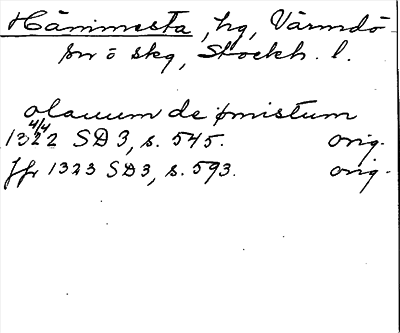 Hämmesta, hg, Värmdö
sn o skg, Stockh. l.
olauum de ømistum
1322 4/4 SD 3, s. 545. orig.
ffr 1323 SD 3, s. 593. orig.